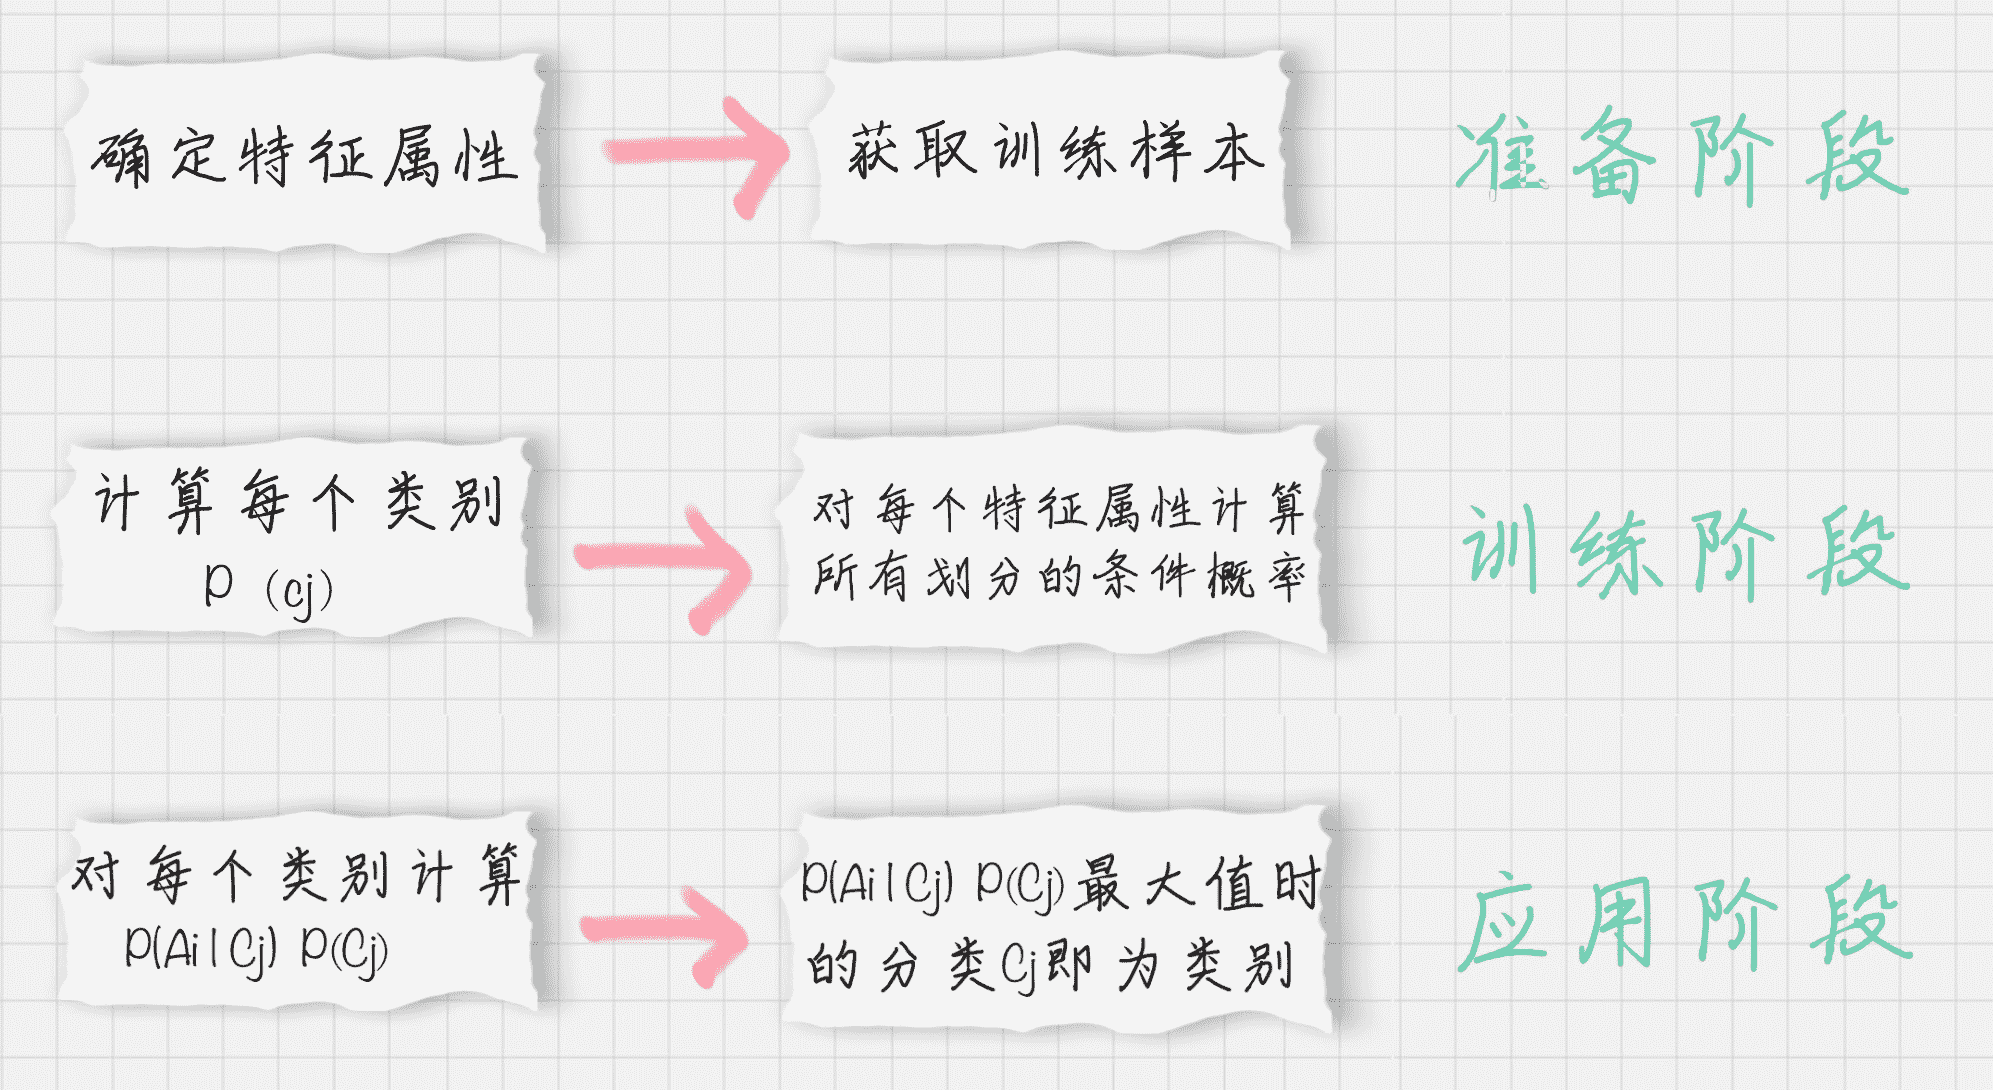 确定特征属性
获取训练样本
准备阶段
计算每个类别
P（cj）
对每个特征属性计算
所有划分的条件概率
训练阶段
对每个类别计算
P(Ai|Cj) P(Cj)
P(Ai|Cj) P(Cj)最大值时
的分类Cj即为类别
应用阶段